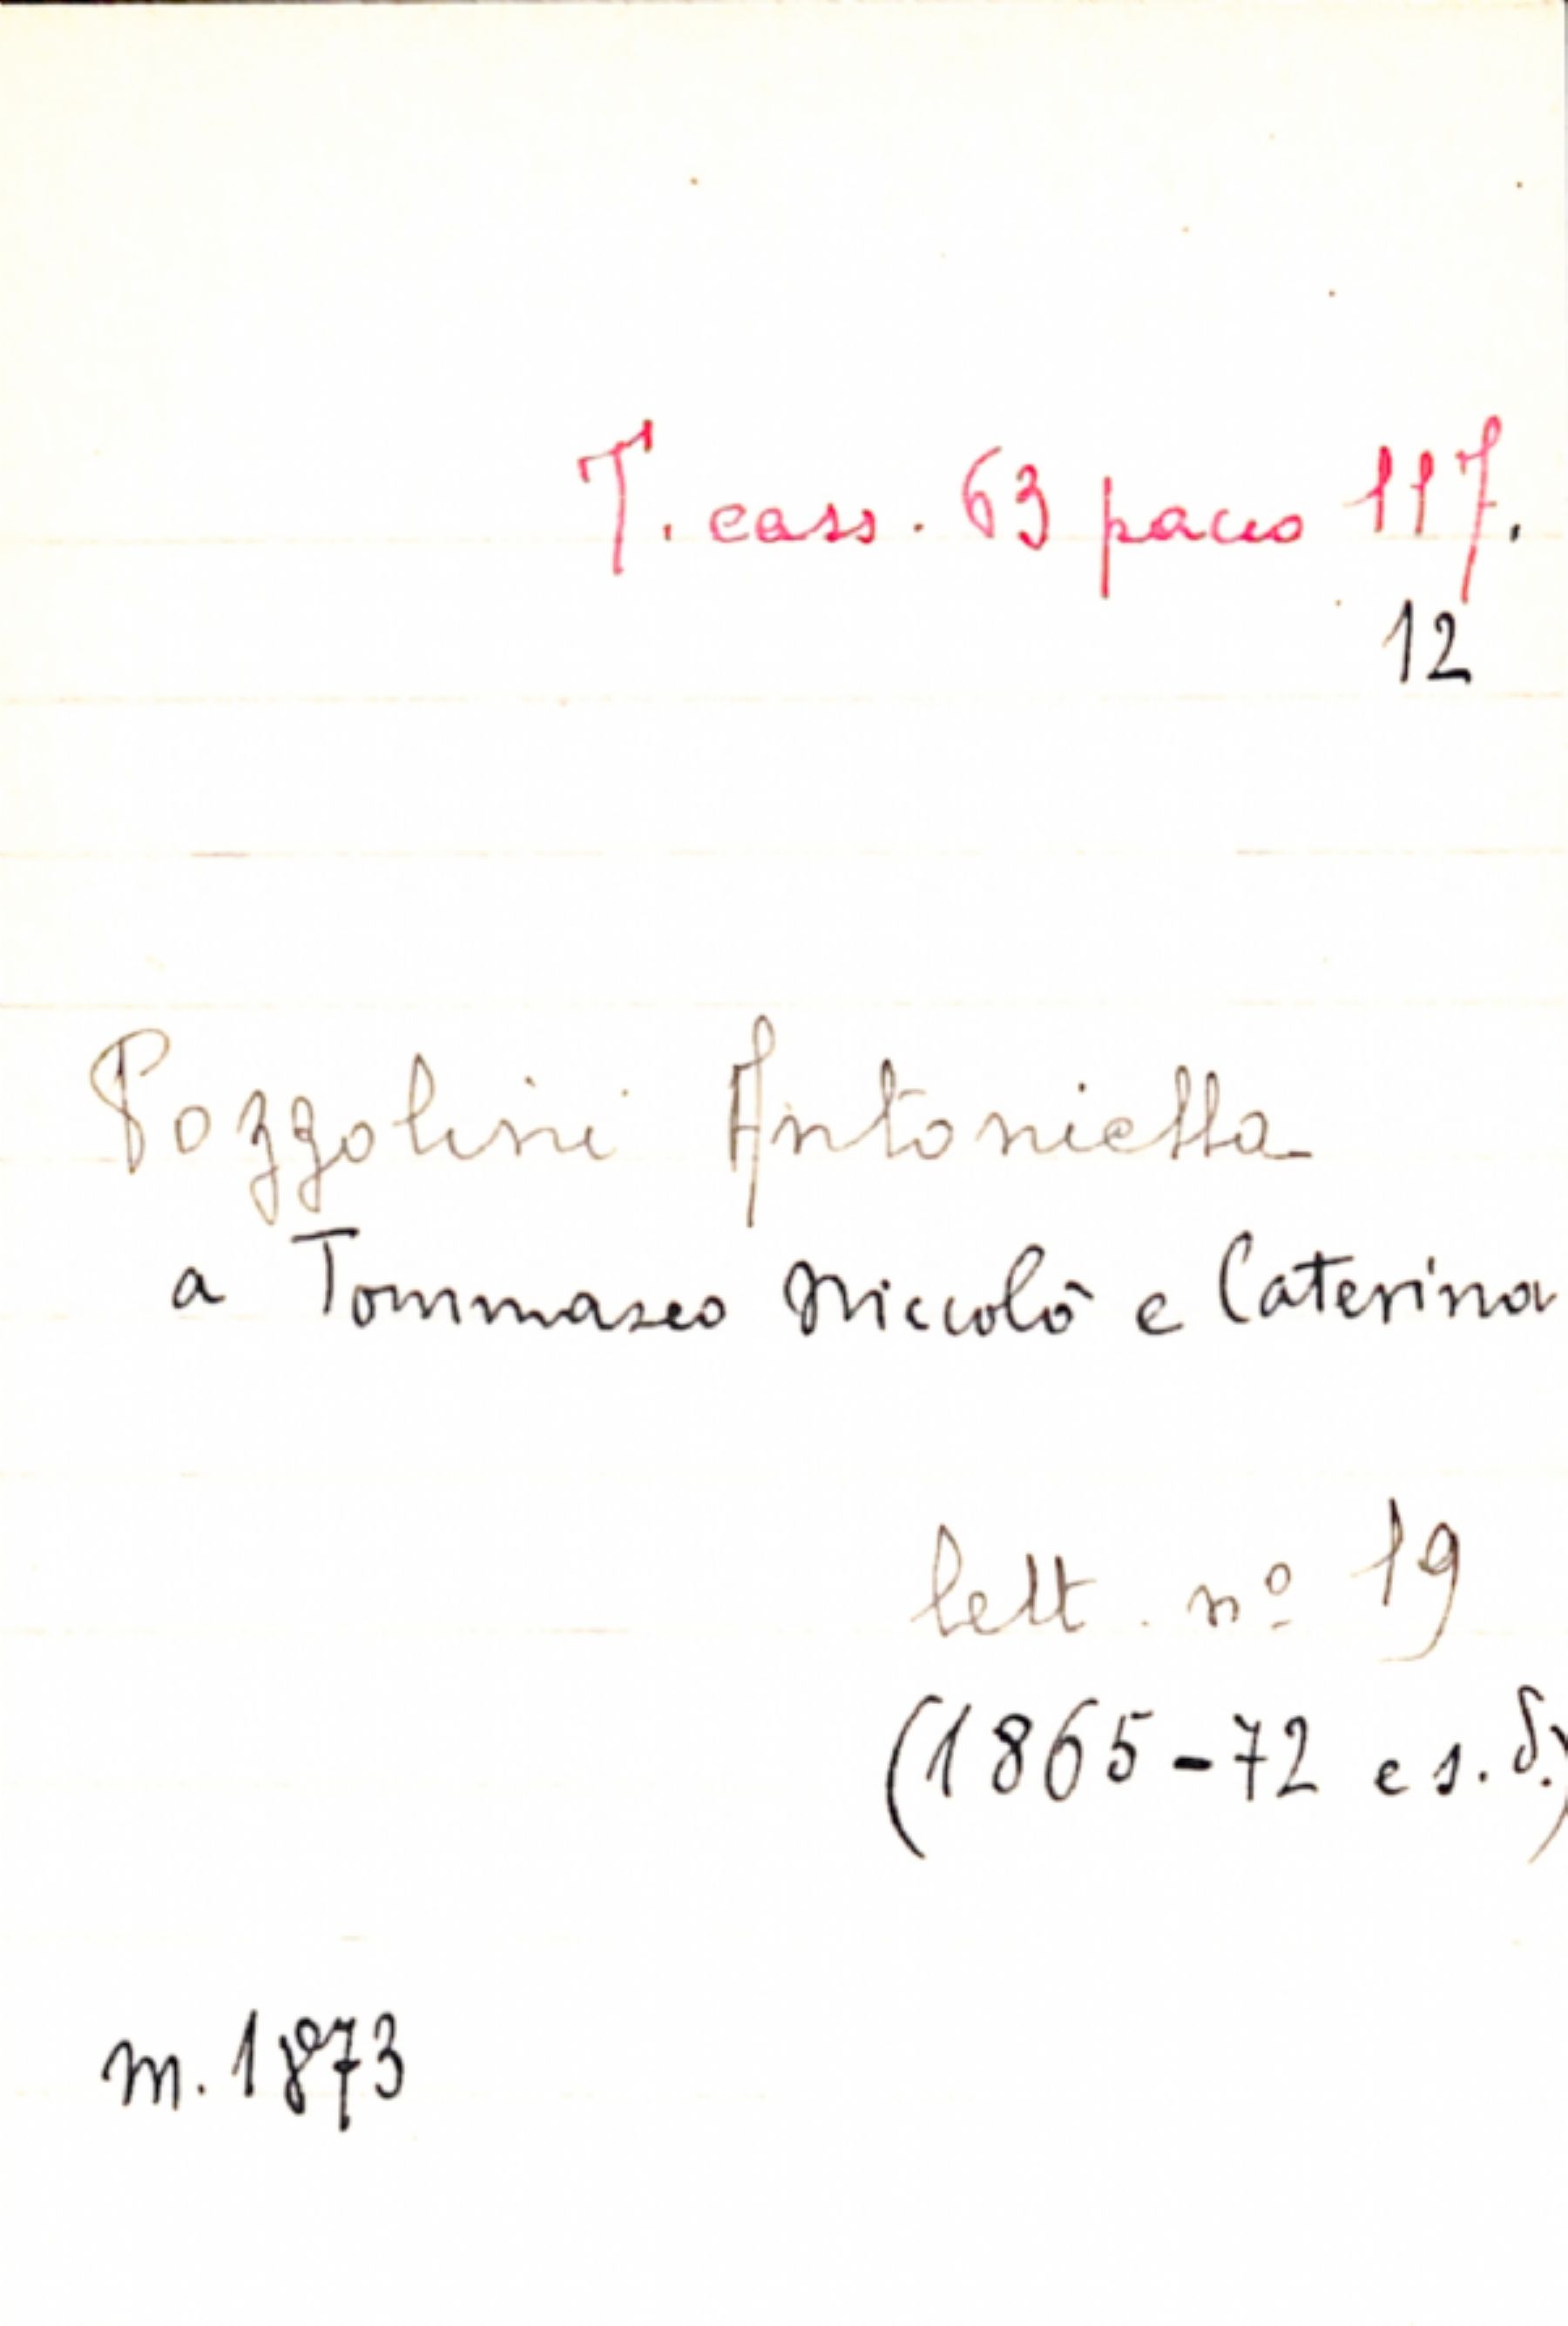 T. cass. 63 pacco 117.
12
Pozzolini Antonietta
a Tommaseo Niccolò e Caterina
lett. nº 19
(1865-72 e s.d.)
m. 1873